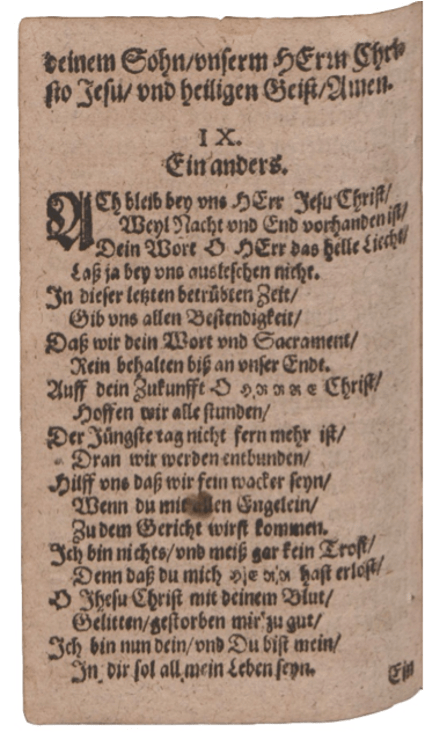 deinem Sohn/vnserm HErrn Chri-
sto Jesu/ vnd heiligen Geist/Amen.
IX.
Ein anders.
ACh bleib bey vns HErr Jesu Christ/
Weyl Nacht vnd End vorhanden ist/
Dein Wort O HErr das helle Liecht/
Laß ja bey vns ausleschen nicht.
In dieser letzten betrübten Zeit/
Gib vns allen Bestendigkeit/
Daß wir dein Wort vnd Sacrament/
Rein behalten biß an vnser Endt.
Auff dein Zukunfft O HERRE Christ/
Hoffen wir alle stunden/
Der Jüngste tag nicht fern mehr ist/
Dran wir werden entbunden/
Hilff vns daß wir fein wacker seyn/
Wenn du mit allen Engelein/
Zu dem Gericht wirst kommen.
Ich bin nichts/vnd weiß gar kein Trost/
Denn daß du mich HERR hast erlost/
O Jhesu Christ mit deinem Blut/
Gelitten/gestorben mir zu gut/
Ich bin nun dein/vnd Du bist mein/
In dir sol all mein Leben seyn.
Ein